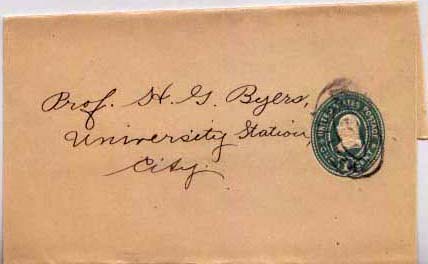 Prof. H. G. Byers,
University Station,
City.
UNITED STATES POSTAGE